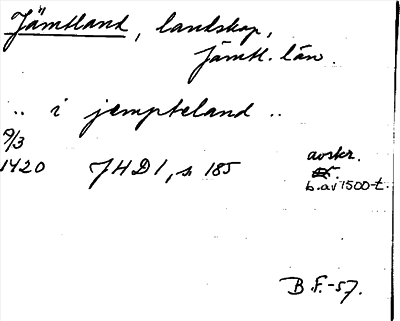 Jämtland, landskap,
Jämtl. län.
.. i jempteland ..
9/3
1420 JHD 1, s 185 avskr.
b. av 1500-t.
B.F.-57.